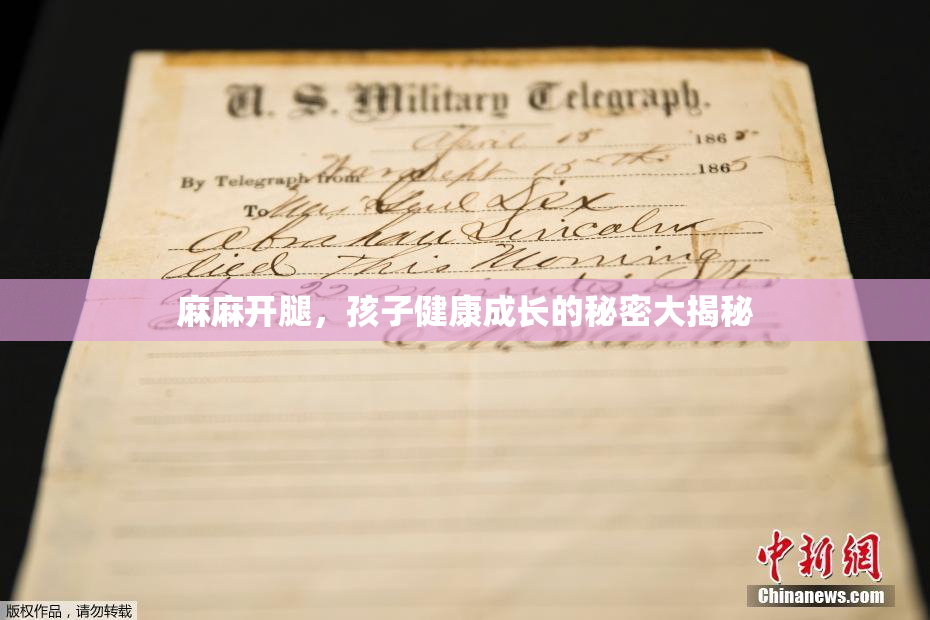 U. S. Military Telegraph.
April 15 1865
By Telegraph from War Dept 15th 1865
To Maj Genl Dix
Abraham Lincoln
died This Morning
at 22 minutes after
麻麻开腿，孩子健康成长的秘密大揭秘
E. M. Stanton
中新网
Chinanews.com
版权作品，请勿转载